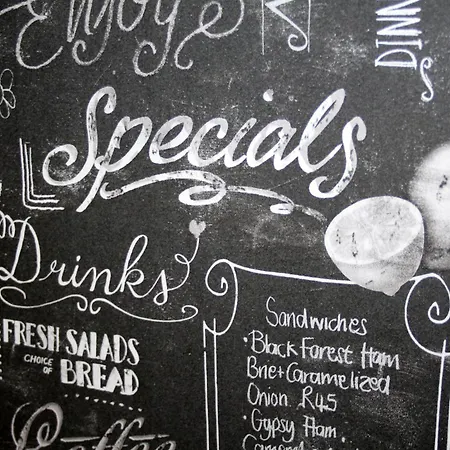 Enjoy
DINN
Specials
Drinks
FRESH SALADS
CHOICE
OF
BREAD
Coffee
Sandwiches
• Black Forest Ham
Brie + Caramelized
Onion R45
• Gypsy Ham •